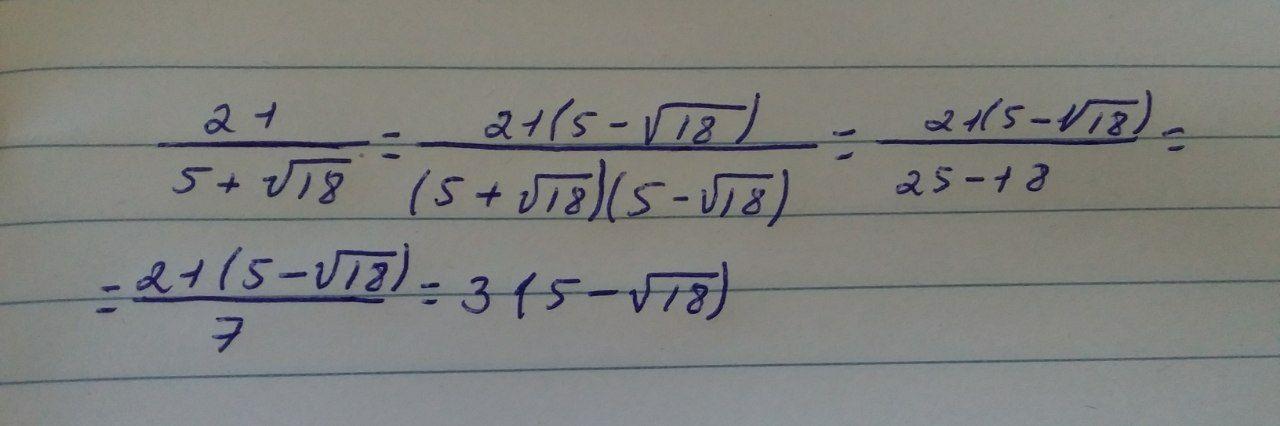 21/(5+√18) = 21(5-√18)/((5+√18)(5-√18)) = 21(5-√18)/(25-18) =
= 21(5-√18)/7 = 3(5-√18)